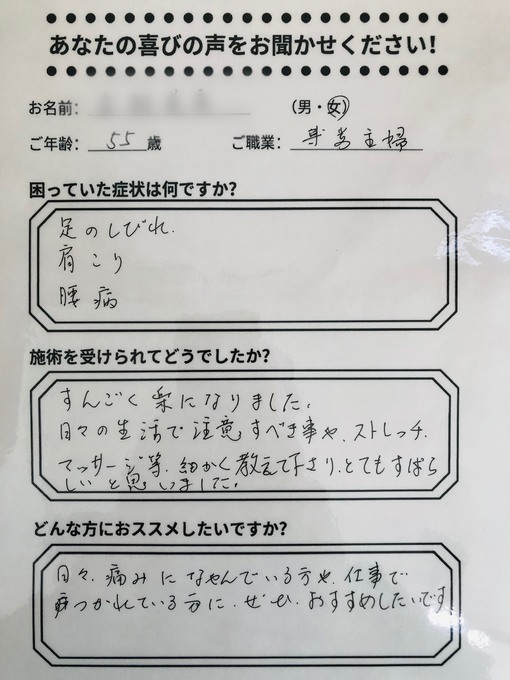 あなたの喜びの声をお聞かせください!
お名前: (男・女)
ご年齢: 55 歳 ご職業: 専業主婦
困っていた症状は何ですか?
足のしびれ.
肩こり
腰痛
施術を受けられてどうでしたか?
すんごく楽になりました.
日々の生活で注意すべき事や、ストレッチ.
マッサージ等、細かく教えて下さり、とてもすばら
しいと思いました.
どんな方におススメしたいですか?
日々、痛みになやんでいる方や、仕事で
つかれている方に、ぜひ、おすすめしたいです